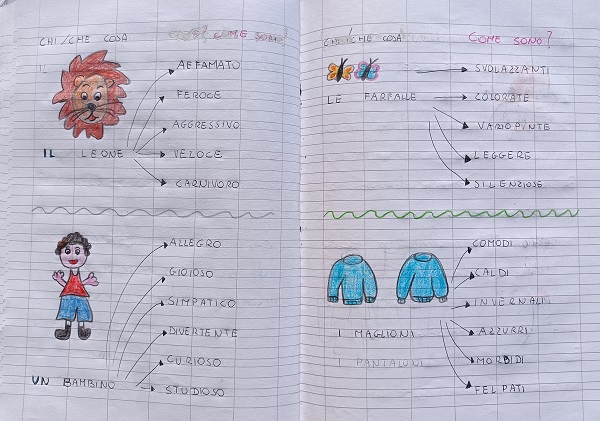 CHI/CHE COSA COME SONO?
IL
AFFAMATO
FEROCE
AGGRESSIVO
IL LEONE VELOCE
CARNIVORO
ALLEGRO
GIOIOSO
SIMPATICO
DIVERTENTE
CURIOSO
UN BAMBINO STUDIOSO
CHI/CHE COSA COME SONO?
SVOLAZZANTI
LE FARFALLE COLORATE
VARIOPINTE
LEGGERE
SILENZIOSE
COMODI
CALDI
INVERNALI
I MAGLIONI AZZURRI
PANTALONI MORBIDI
FELPATI